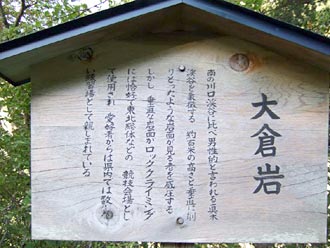 大倉岩
南の川口渓谷に比べ男性的と言われる真木
渓谷を象徴する 約百米の高さと垂直に削
りとったような岩面が見る者を威圧する
しかし 垂直な岩面がロッククライミング
には恰好で東北総体などの 競技会場とし
て使用され 愛好者からは県内では数少
い競技会場として親しまれている